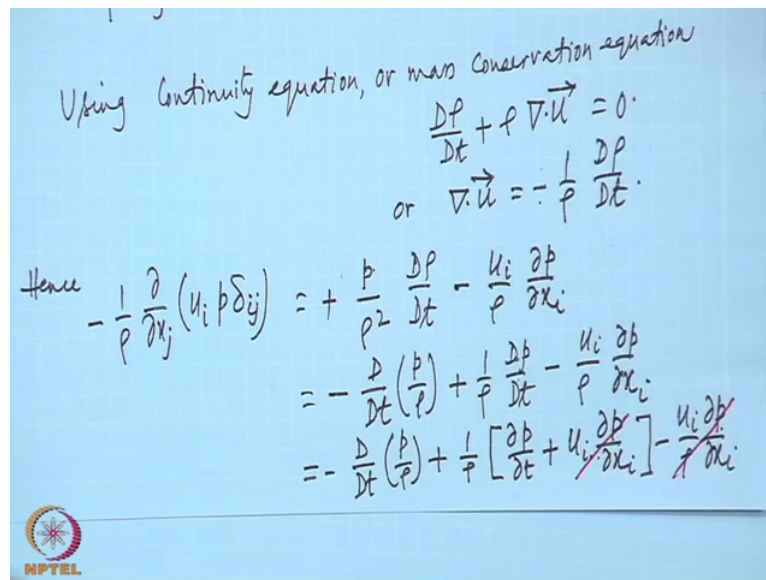 Using Continuity equation, or mass conservation equation
Dρ/Dt + ρ ∇·u⃗ = 0.
or ∇·u⃗ = - 1/ρ Dρ/Dt.
Hence - 1/ρ ∂/∂xj (ui p δij) = + p/ρ² Dρ/Dt - ui/ρ ∂p/∂xi
= - D/Dt (p/ρ) + 1/ρ Dp/Dt - ui/ρ ∂p/∂xi
= - D/Dt (p/ρ) + 1/ρ [∂p/∂t + ui ∂p/∂xi] - ui/ρ ∂p/∂xi
NPTEL